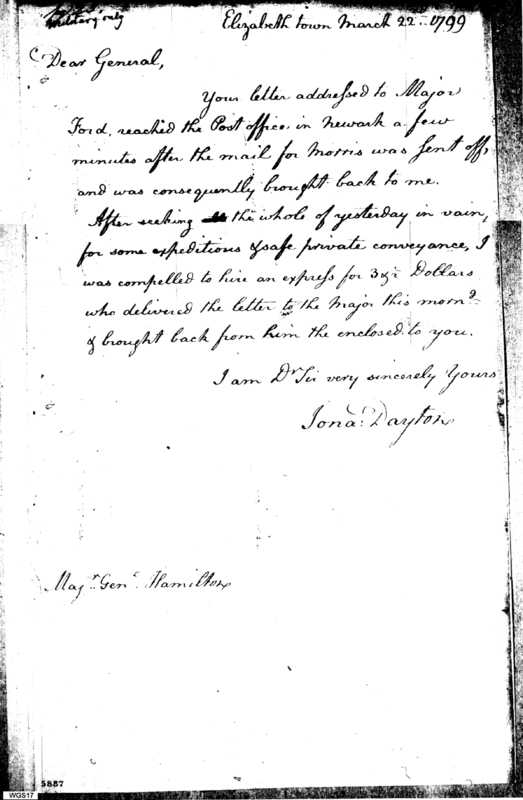 military only
Elizabeth town March 22d. 1799
Dear General,
Your letter addressed to Major
Ford, reached the Post office in Newark a few
minutes after the mail for Morris was sent off,
and was consequently brought back to me.
After seeking the whole of yesterday in vain,
for some expeditious & safe private conveyance, I
was compelled to hire an express for 3 & ½ Dollars
who delivered the letter to the Major this morng.
& brought back from him the enclosed to you.
I am Dr Sir very sincerely Yours
Jona: Dayton
Majr. Genl. Hamilton
5887
WGS17